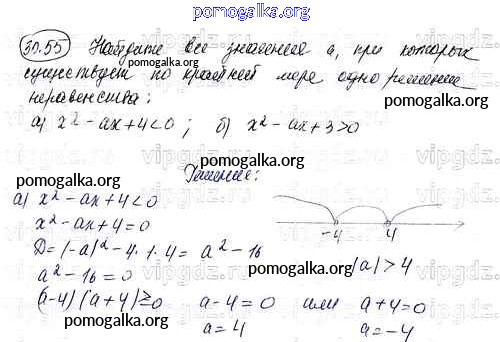 pomogalka.org
30.55 Найдите все значения a, при которых
существует по крайней мере одно решение
неравенства:
pomogalka.org
pomogalka.org
а) x² - ax + 4 < 0; б) x² - ax + 3 > 0
vipgdz.com
pomogalka.org
Решение:
pomogalka.org
а) x² - ax + 4 < 0
x² - ax + 4 = 0
-4 4
D = (-a)² - 4 · 1 · 4 = a² - 16
pomogalka.org
a² - 16 = 0
|a| > 4
(a-4)(a+4) ≥ 0 a - 4 = 0 или a + 4 = 0
a = 4 a = -4
pomogalka.org
pomogalka.org